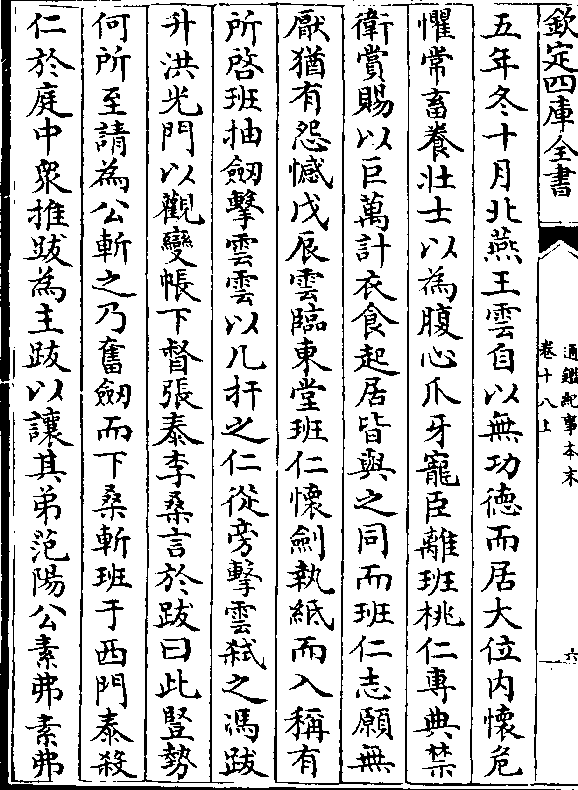 欽定四庫全書
通鑑紀事本末
卷十八上
六
五年冬十月北燕王雲自以無功德而居大位内懷危
懼常畜養壯士以為腹心爪牙寵臣離班桃仁專典禁
衛賞賜以巨萬計衣食起居皆與之同而班仁志願無
厭猶有怨憾戊辰雲臨東堂班仁懷劍執紙而入稱有
所啓班抽劒擊雲雲以几扞之仁從旁擊雲弑之馮跋
升洪光門以觀變帳下督張泰李桑言於跋曰此豎勢
何所至請為公斬之乃奮劒而下桑斬班于西門泰殺
仁於庭中衆推跋為主跋以讓其弟范陽公素弗素弗